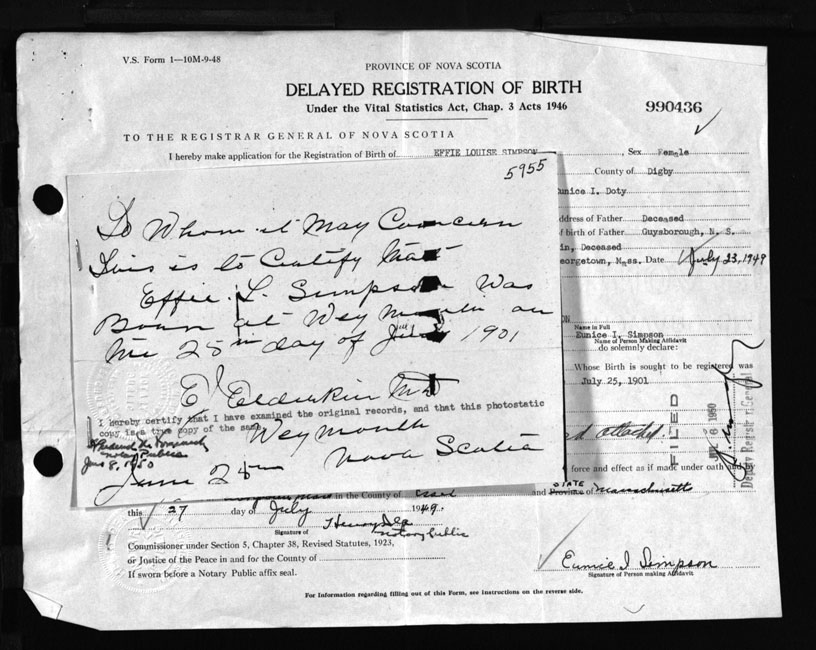 V.S. Form 1—10M-9-48
PROVINCE OF NOVA SCOTIA
DELAYED REGISTRATION OF BIRTH
Under the Vital Statistics Act, Chap. 3 Acts 1946
990436
TO THE REGISTRAR GENERAL OF NOVA SCOTIA
I hereby make application for the Registration of Birth of EFFIE LOUISE SIMPSON, Sex Female
County of Digby
Eunice I. Doty
Address of Father Deceased
of birth of Father Guysborough, N. S.
in, Deceased
eorgetown, Mass. Date July 23, 1949
ON
Name in Full
Eunice I. Simpson
Name of Person Making Affidavit
do solemnly declare:
Whose Birth is sought to be registered was
July 25, 1901
attached.
force and effect as if made under oath and by
FILED
1950
Deputy Registrar General
5955
To Whom it May Concern
This is to Certify that
Effie L. Simpson Was
Born at Weymouth on
the 25th day of July 1901
E Elderkin MD
I hereby certify that I have examined the original records, and that this photostatic
copy is a true copy of the same.
Weymouth
Notary Public
June 8, 1950
June 25th Nova Scotia
in the County of Essex
STATE
and Province of Massachusetts
this 27 day of July 1949.
Signature of
Notary Public
Commissioner under Section 5, Chapter 38, Revised Statutes, 1923,
or Justice of the Peace in and for the County of
If sworn before a Notary Public affix seal.
Eunice I. Simpson
Signature of Person making Affidavit
For Information regarding filling out of this Form, see instructions on the reverse side.